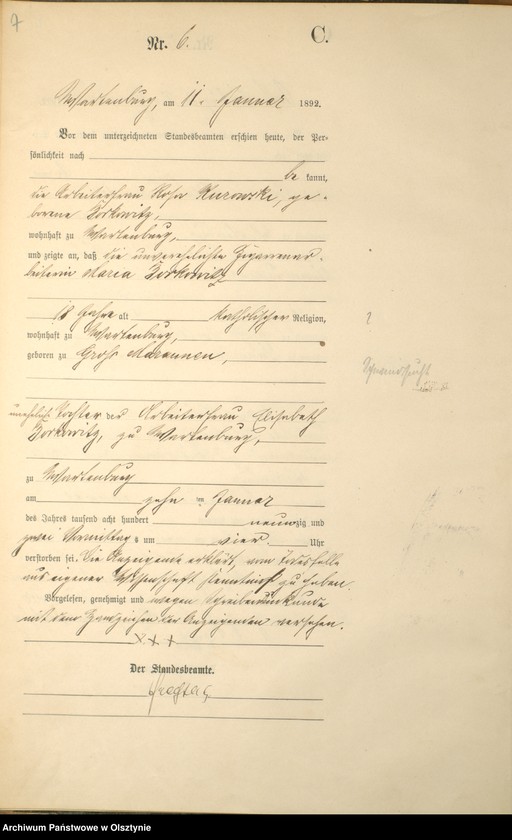 7
Nr. 6.
C.
Wartenburg, am 11. Januar 1892.
Vor dem unterzeichneten Standesbeamten erschien heute, der Per-
sönlichkeit nach
be kannt,
die Arbeiterfrau Rosa Kurowski, ge-
borene Zorkowitz,
wohnhaft zu Wartenburg,
und zeigte an, daß die unverehelichte Zigarrenar-
beiterin Maria Zorkowitz
18 Jahre alt katholischer Religion,
wohnhaft zu Wartenburg,
geboren zu Groß Maraunen,
Schwindsucht
unehelich Tochter der Arbeiterfrau Elisabeth
Zorkowitz, zu Wartenburg,
zu Wartenburg
am zehn ten Januar
des Jahres tausend acht hundert neunzig und
zwei Vormittags um vier Uhr
verstorben sei. Die Anzeigende erklärt, vom Todesfalle
aus eigener Wissenschaft Kenntniß zu haben.
Vorgelesen, genehmigt und wegen Schreibensunkunde
mit dem Handzeichen der Anzeigenden versehen.
XXX
Der Standesbeamte.
Archiwum Państwowe w Olsztynie